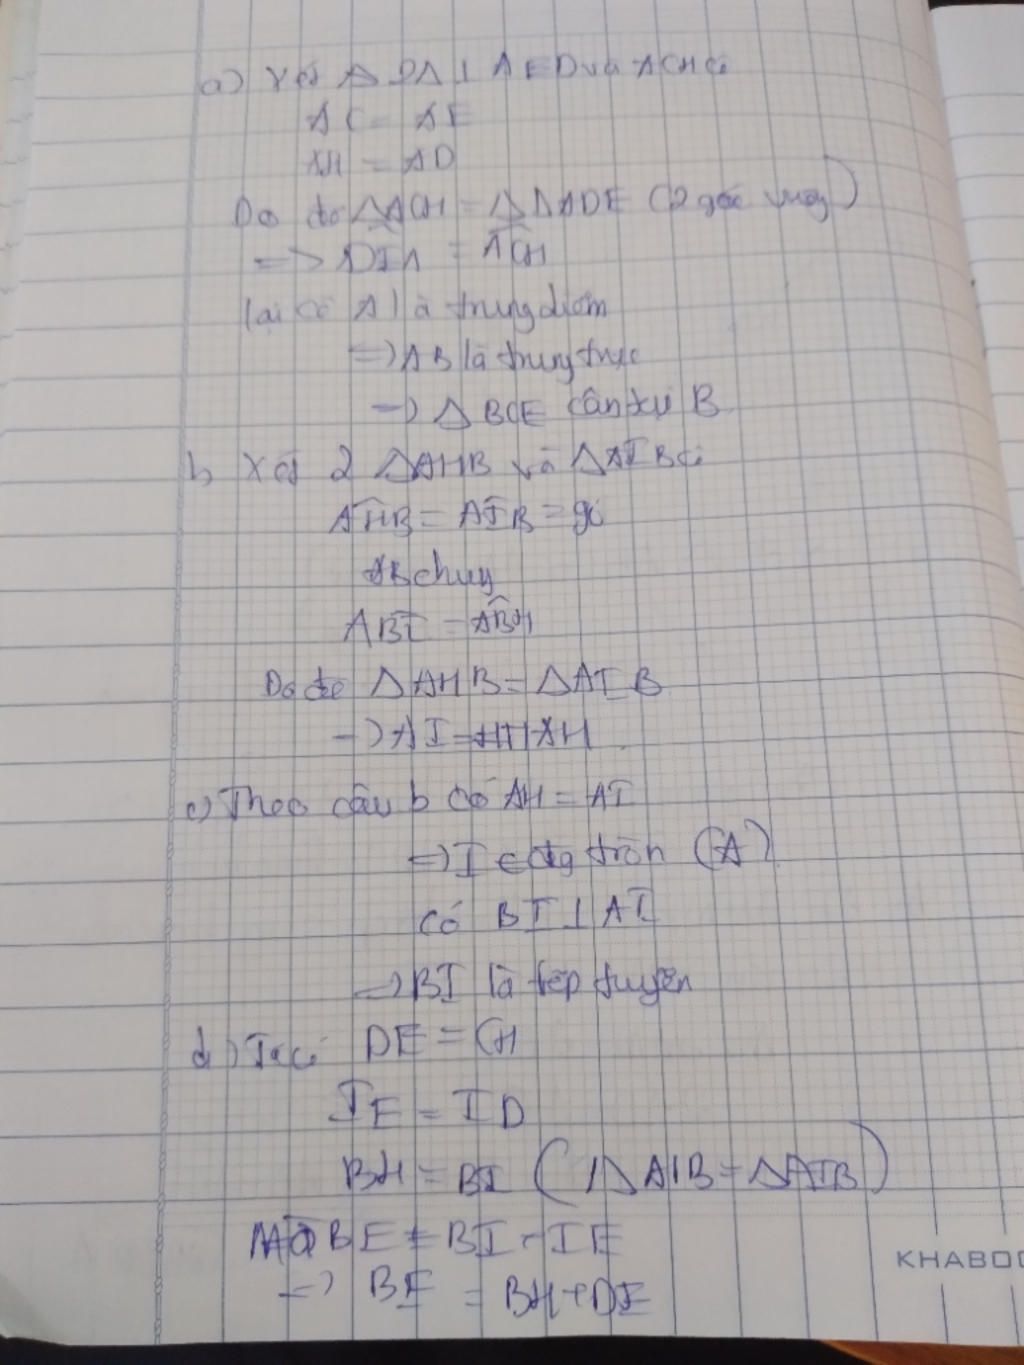 a) Xét Δ AED và ACH có
AC = AE
AH = AD
Do đó ΔACH = ΔADE (2 góc vuông)
=> = ACH
lại có A là trung điểm
=> AB là trung trực
=> Δ BCE cân tại B
b, Xét 2 ΔAHB và ΔAIB có
AHB = AIB = 90
AB chung
ABI = ABH
Do đó ΔAHB = ΔAIB
=> AI = AH
c) Theo câu b có AH = AI
=> I ∈ đg tròn (A)
có BI ⊥ AI
=> BI là tiếp tuyến
d) Ta có DE = CH
IE = ID
BH = BI (ΔAIB = ΔAIB)
Mà BE = BI + IE
=> BE = BH + DE
KHABOO